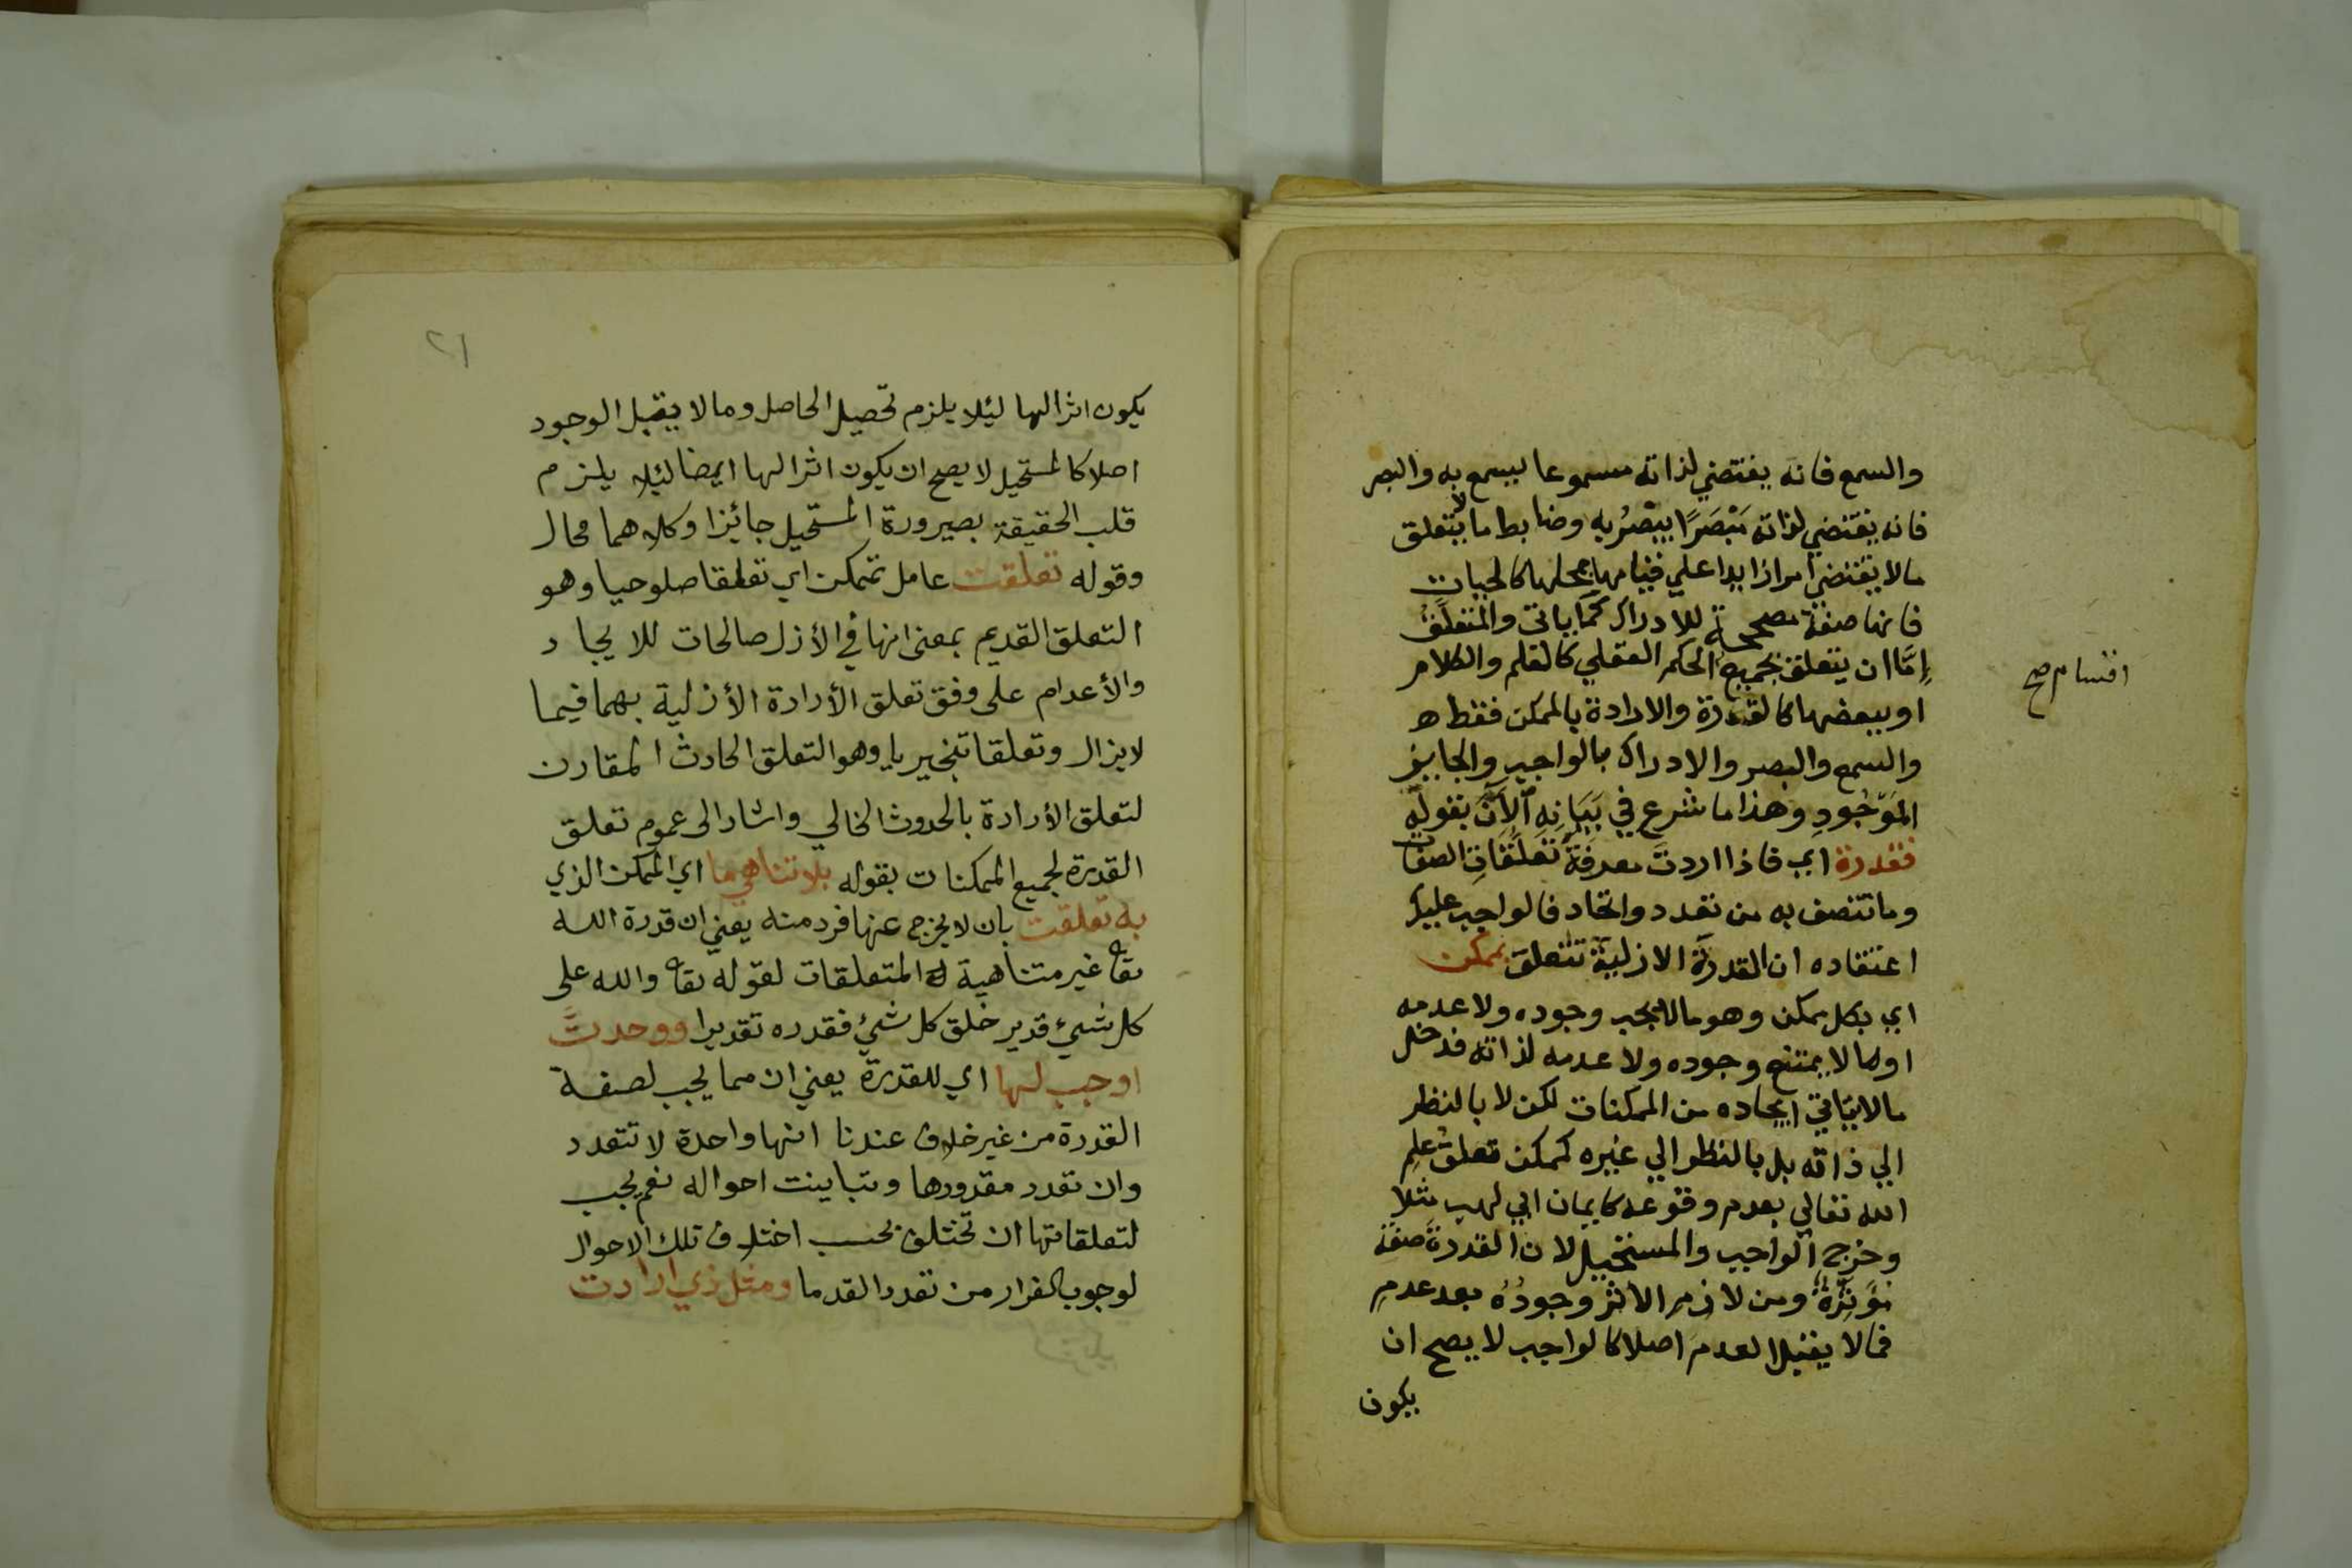 والسمع فانه يقتضي لذاته مسموعا يسمع به والبصر
فانه يقتضي لذاته مُبْصَرًا يبْصُرُ به وضابط ما لا يتعلق
مالا يقتضي امرا زايدا علي قيامها بمحلها كالحياة
فانها صفة مصححة للادراك كما ياتي والمتعلق
إمَّا ان يتعلق بجميع الحكم العقلي كالعلم والكلام
اقسام صح
او ببعضها كالقدرة والارادة بالممكن فقط ه
والسمع والبصر والادراك بالواجب والجايز
الموْجُودِ وهذا ما شرع في بَيَانِهِ الآنَ بقوله
فقدرة اي فاذا اردتَ معرفة تعلقاتِ الصفات
وما تتصف به من تعدد واتحاد فالواجب عليك
اعتقاده ان القدرة الازلية تتعلق بممكن
اي بكل ممكن وهو مالا يجب وجوده ولا عدمه
او ما لا يمتنع وجوده ولا عدمه لذاته فدخل
مالا يتاتي ايجاده من الممكنات لكن لا بالنظر
الي ذاته بل بالنظر الي غيره كممكن تعلق علم
الله تعالي بعدم وقوعه كايمان ابي لهب مثلا
وخرج الواجب والمستحيل لان القدرة صفة
مؤثرة ومن لازم الاثر وجودُهُ بعد عدمِ
فمالا يقبل العدم اصلا كالواجب لا يصح ان
يكون
٢١
يكون اثرا لها ليئلا يلزم تحصيل الحاصل ومالا يقبل الوجود
اصلا كالمستحيل لا يصح ان يكون اثرا لها ايضا ليئلا يلزم
قلب الحقيقة بصيرورة المستحيل جائزا وكلاهما محال
وقوله تعلقت عامل بممكن اي تعلقا صلوحيا وهو
التعلق القديم بمعنى انها في الأزل صالحات للايجاد
والأعدام على وفق تعلق الأرادة الأزلية بهما فيما
لايزال وتعلقا تنجيريا وهو التعلق الحادث المقارن
لتعلق الأرادة بالحدوث الحالي واشار الى عموم تعلق
القدرة لجميع الممكنات بقوله بلا تناهي ما اي الممكن الذي
به تعلقت بان لا يخرج عنها فرد منه يعني ان قدرة الله
تعا غير متناهية المتعلقات لقوله تعا والله على
كل شيئ قدير خلق كل شيئ فقدره تقديرا ووحدتً
اوجب لها اي للقدرة يعني ان مما يجب لصفة
القدرة من غير خلاف عندنا انها واحدة لا تتعدد
وان تعدد مقدورها وتباينت احواله نعم يجب
لتعلقاتها ان تختلف بحسب اختلاف تلك الاحوال
لوجوب الفرار من تعدد القدما ومثل ذي ارادت